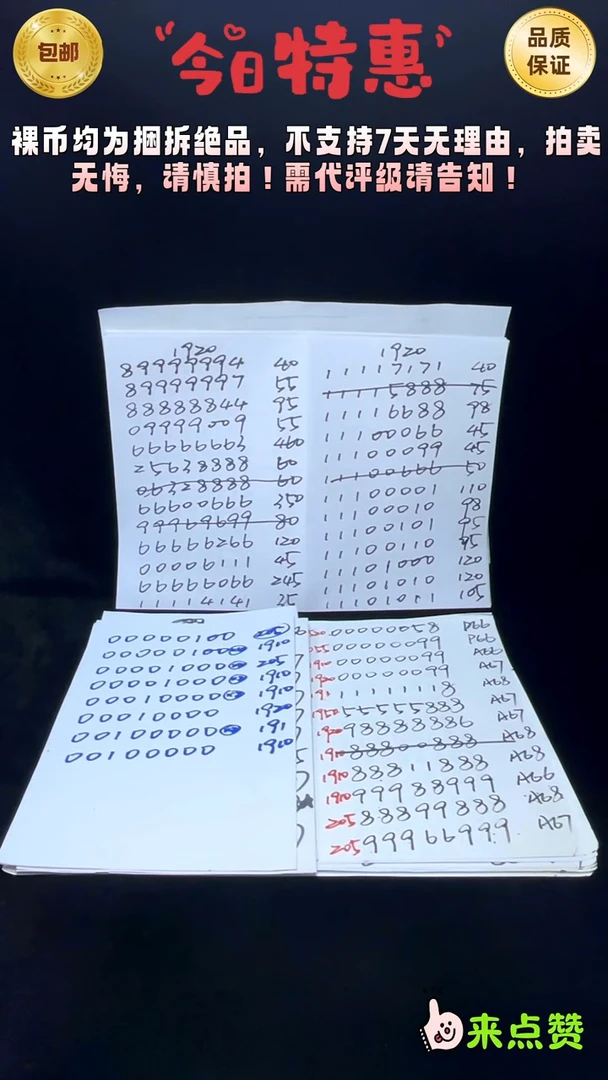 包邮
今日特惠
品质
保证
裸币均为捆拆绝品，不支持7天无理由，拍卖
无悔，请慎拍！需代评级请告知！
1920
89999994 40
89999997 55
88888844 95
09999009 55
66666663 460
25638888 60
06328888 60
66600666 350
99969699 80
66666266 120
00006111 45
66666066 245
11114141 35
1920
11117171 40
11115888 75
11116688 98
11100066 45
11100099 45
11100666 50
11100001 110
11100010 98
11100101 95
11100110 95
11101000 120
11101010 120
11101011 105
00000100 205
00000100 1910
00001000 205
00001000 1910
00010000 1910
00010000 1920
00100000 191
00100000 1910
00000058 D66
00000099 P66
1910 00000099 A66
1920 00000099 A67
191 11111118 A68
1920 55555888 A67
1920 98888886 A67
1910 88800888 A68
1910 88811888 A68
1910 99988999 A66
205 88899888 A68
205 99966999 A67
来点赞